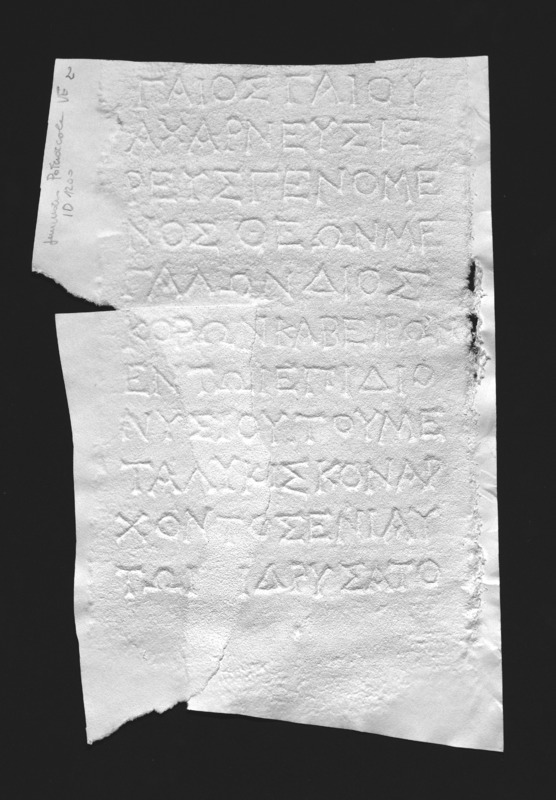 ΓΑΙΟΣΓΑΙΟΥ
ΑΧΑΡΝΕΥΣΙΕ
ΡΕΥΣΓΕΝΟΜΕ
ΝΟΣΘΕΩΝΜΕ
ΓΑΛΩΝΔΙΟΣ
ΚΟΡΩΝΚΑΒΕΙΡΩΝ
ΕΝΤΩΙΕΠΙΔΙΟ
ΝΥΣΙΟΥΤΟΥΜΕ
ΤΑΛΥΚΙΣΚΟΝΑΡ
ΧΟΝΤΟΣΕΝΙΑΥ
ΤΩΙ ΙΔΡΥΣΑΤΟ
VE 2